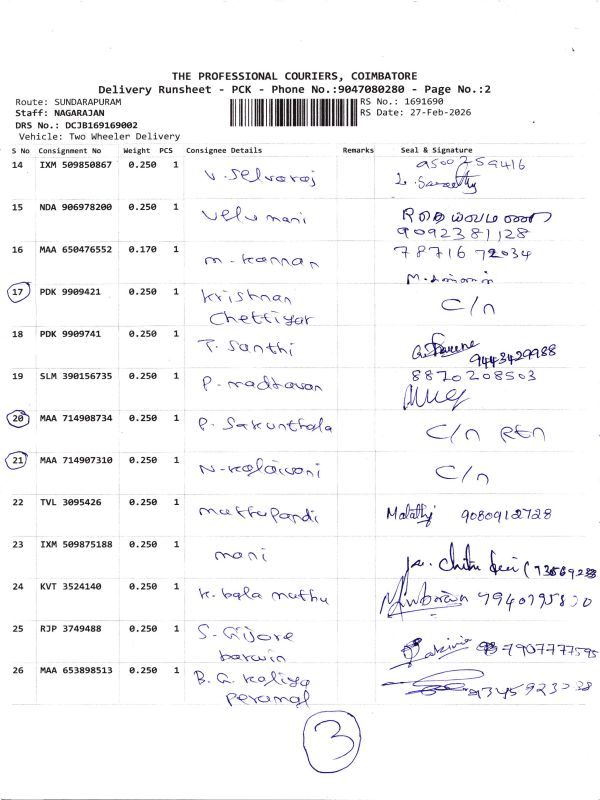 THE PROFESSIONAL COURIERS, COIMBATORE
Delivery Runsheet - PCK - Phone No.:9047080280 - Page No.:2
Route: SUNDARAPURAM RS No.: 1691690
Staff: NAGARAJAN RS Date: 27-Feb-2026
DRS No.: DCJB169169002
Vehicle: Two Wheeler Delivery
S No Consignment No Weight PCS Consignee Details Remarks Seal & Signature
14 IXM 509850867 0.250 1 V. Selvaraj 9500259416
15 NDA 906978200 0.250 1 Velu mani
9092381128
16 MAA 650476552 0.170 1 m. kannan 7871672034
17 PDK 9909421 0.250 1 Krishnan C/n
Chettiyar
18 PDK 9909741 0.250 1 T. Santhi 9443429988
19 SLM 390156735 0.250 1 P. madhavan 8870208503
20 MAA 714908734 0.250 1 P. Sakunthala C/n RTN
21 MAA 714907310 0.250 1 N. Kalaivani C/n
22 TVL 3095426 0.250 1 muthupandi Malathy 9080912728
23 IXM 509875188 0.250 1 mani
24 KVT 3524140 0.250 1 K. bala muthu
25 RJP 3749488 0.250 1 S. Gijore 7907777595
barwin
26 MAA 653898513 0.250 1 B. G. Kaliya 9345923038
Perumal
3